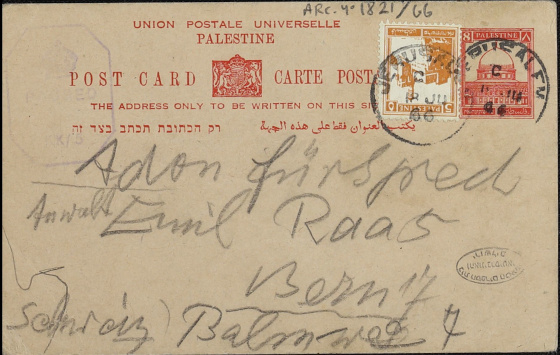 ARC. 4° 1821/66
UNION POSTALE UNIVERSELLE
PALESTINE
8 PALESTINE ٨
POST CARD CARTE POSTALE
THE ADDRESS ONLY TO BE WRITTEN ON THIS SIDE
רק הכתובת תכתב בצד זה يكتب العنوان فقط على هذه الجهة
JERUSALEM
JERUSALEM
C
Adon Fürsprech
Anwalt Emil Raas
Bern 17
Schweiz) Balmweg 7